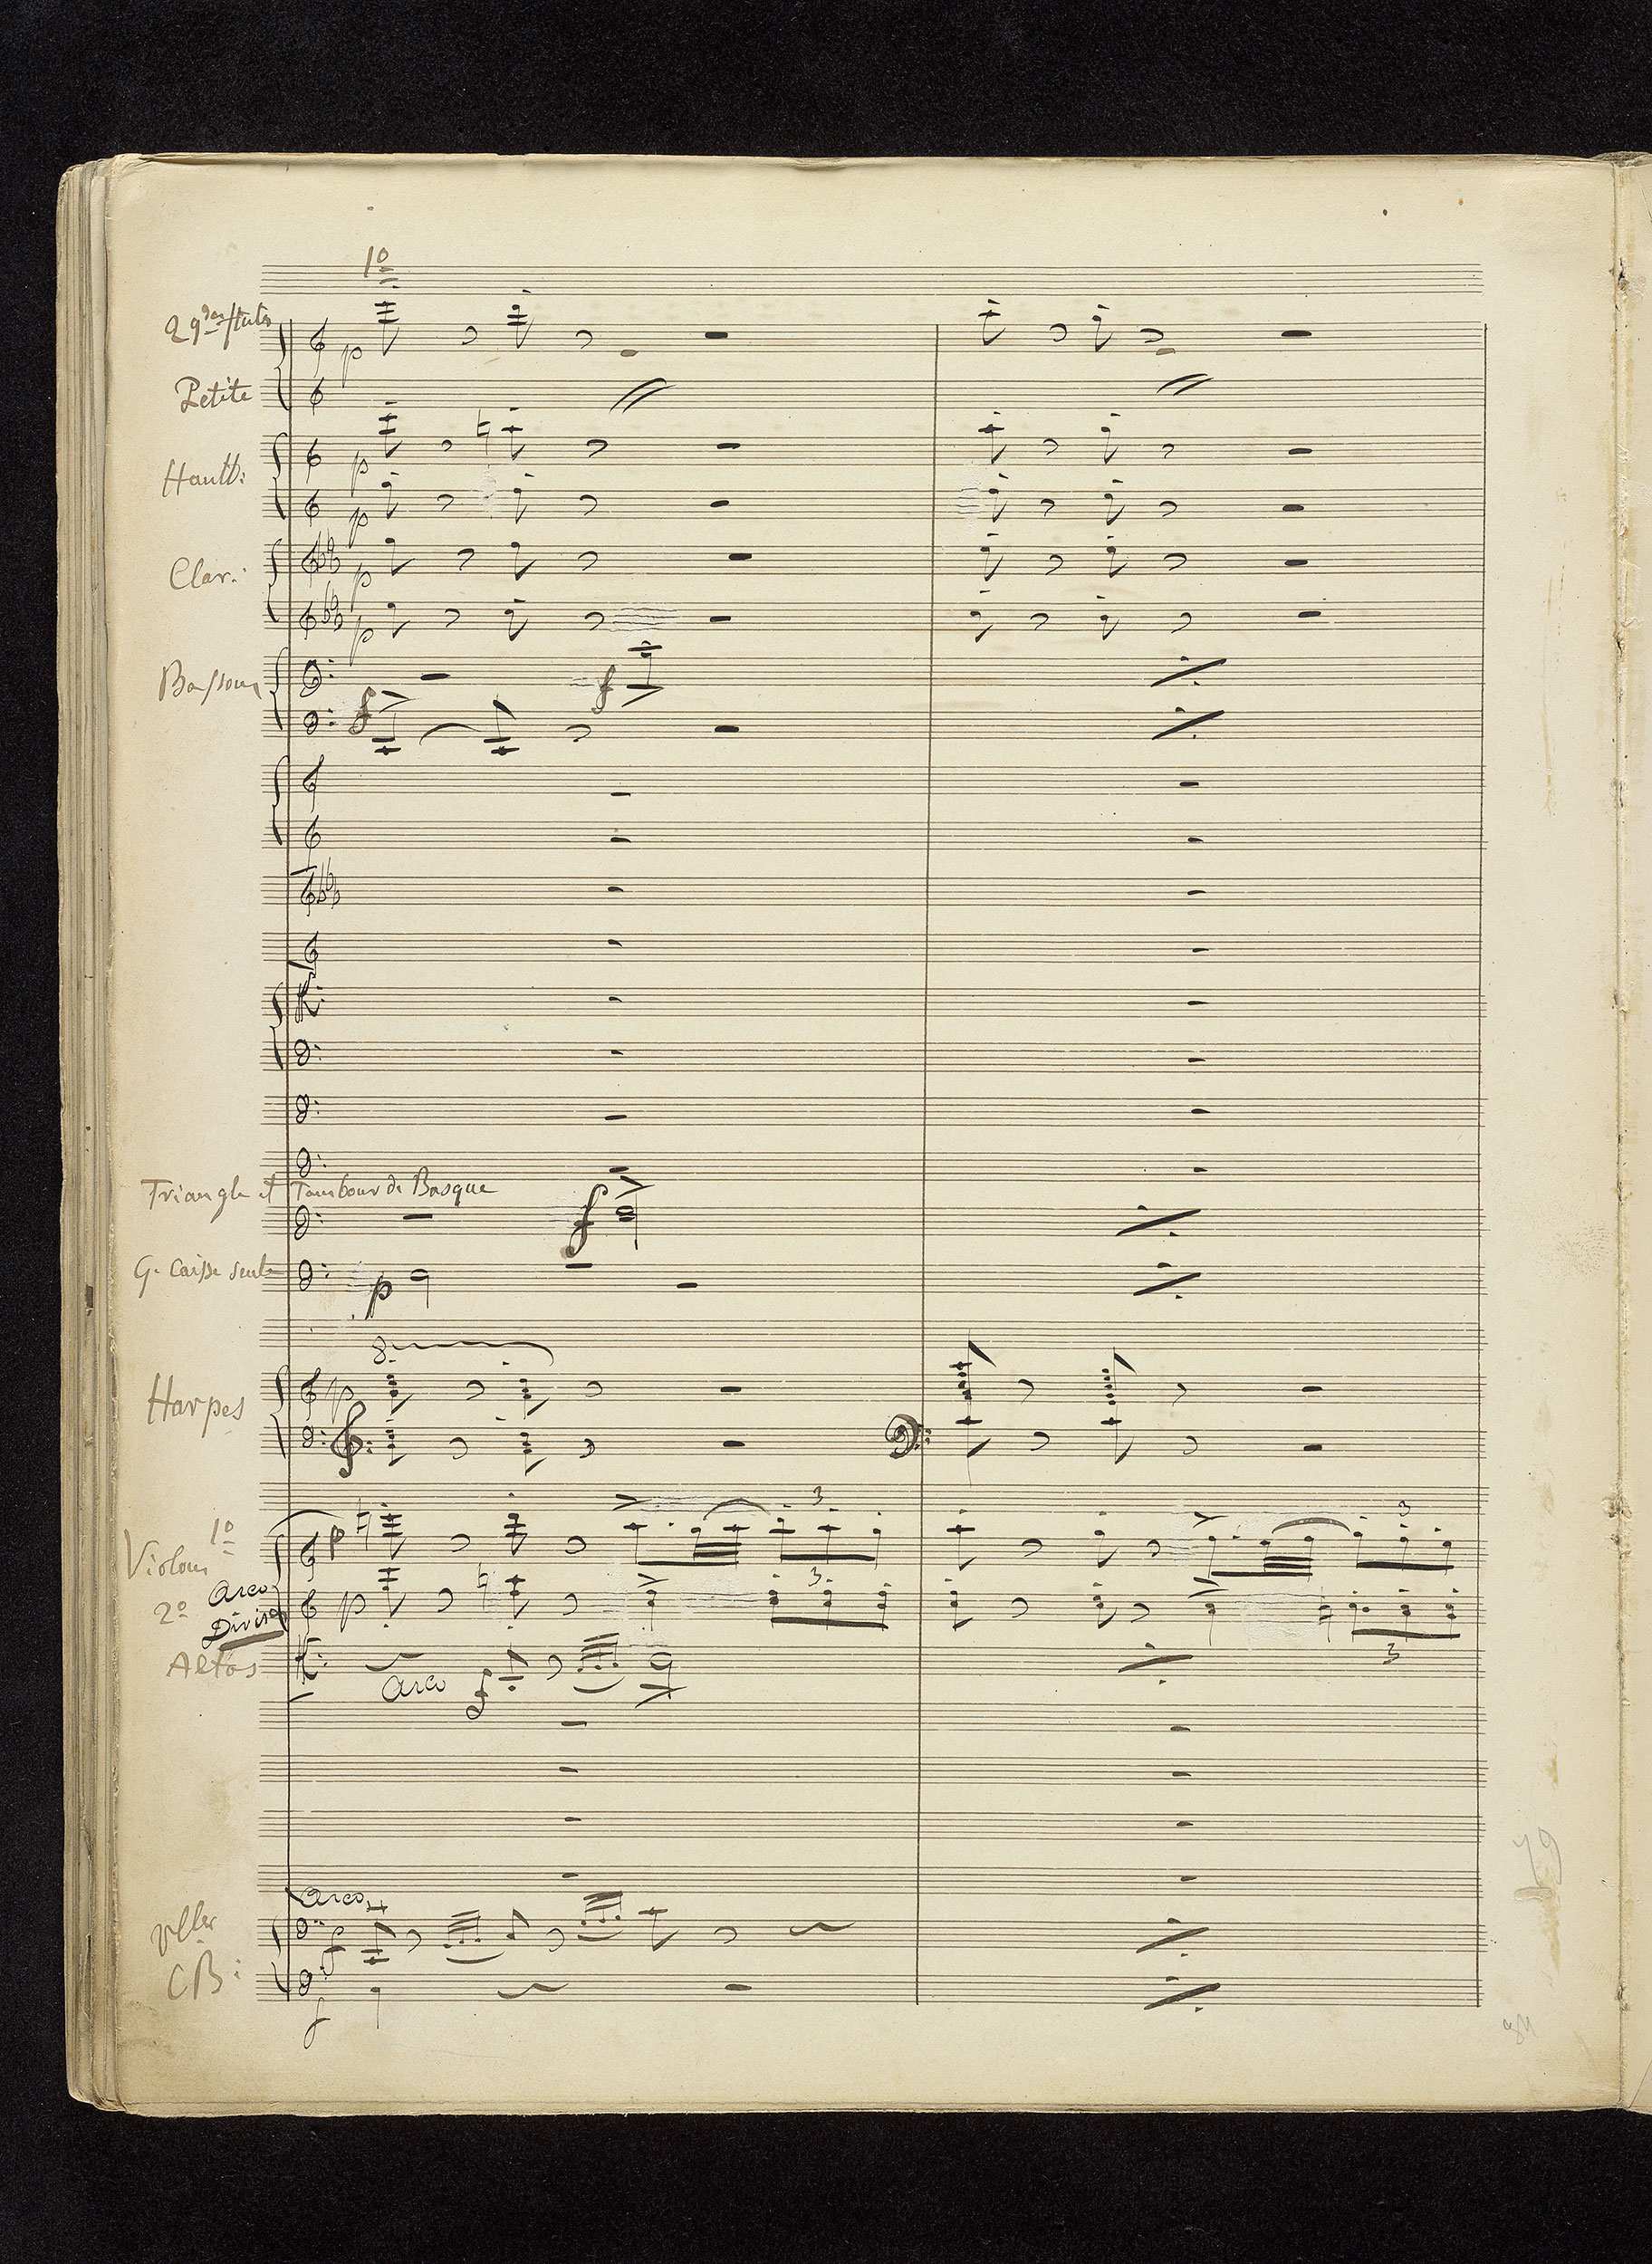 1º
2 gdes flutes
p
Petite
Hautb:
p
p
Clar:
p
p
Bassons
f
f
Triangle et Tambour de Basque
f
G. Caisse seule
p
8
Harpes
p
3
3
Violons 1º
p
Arco
3
2º
p
Divisés
Altos
Arco
f
3
Arco
Vlles
f
CB:
f
79